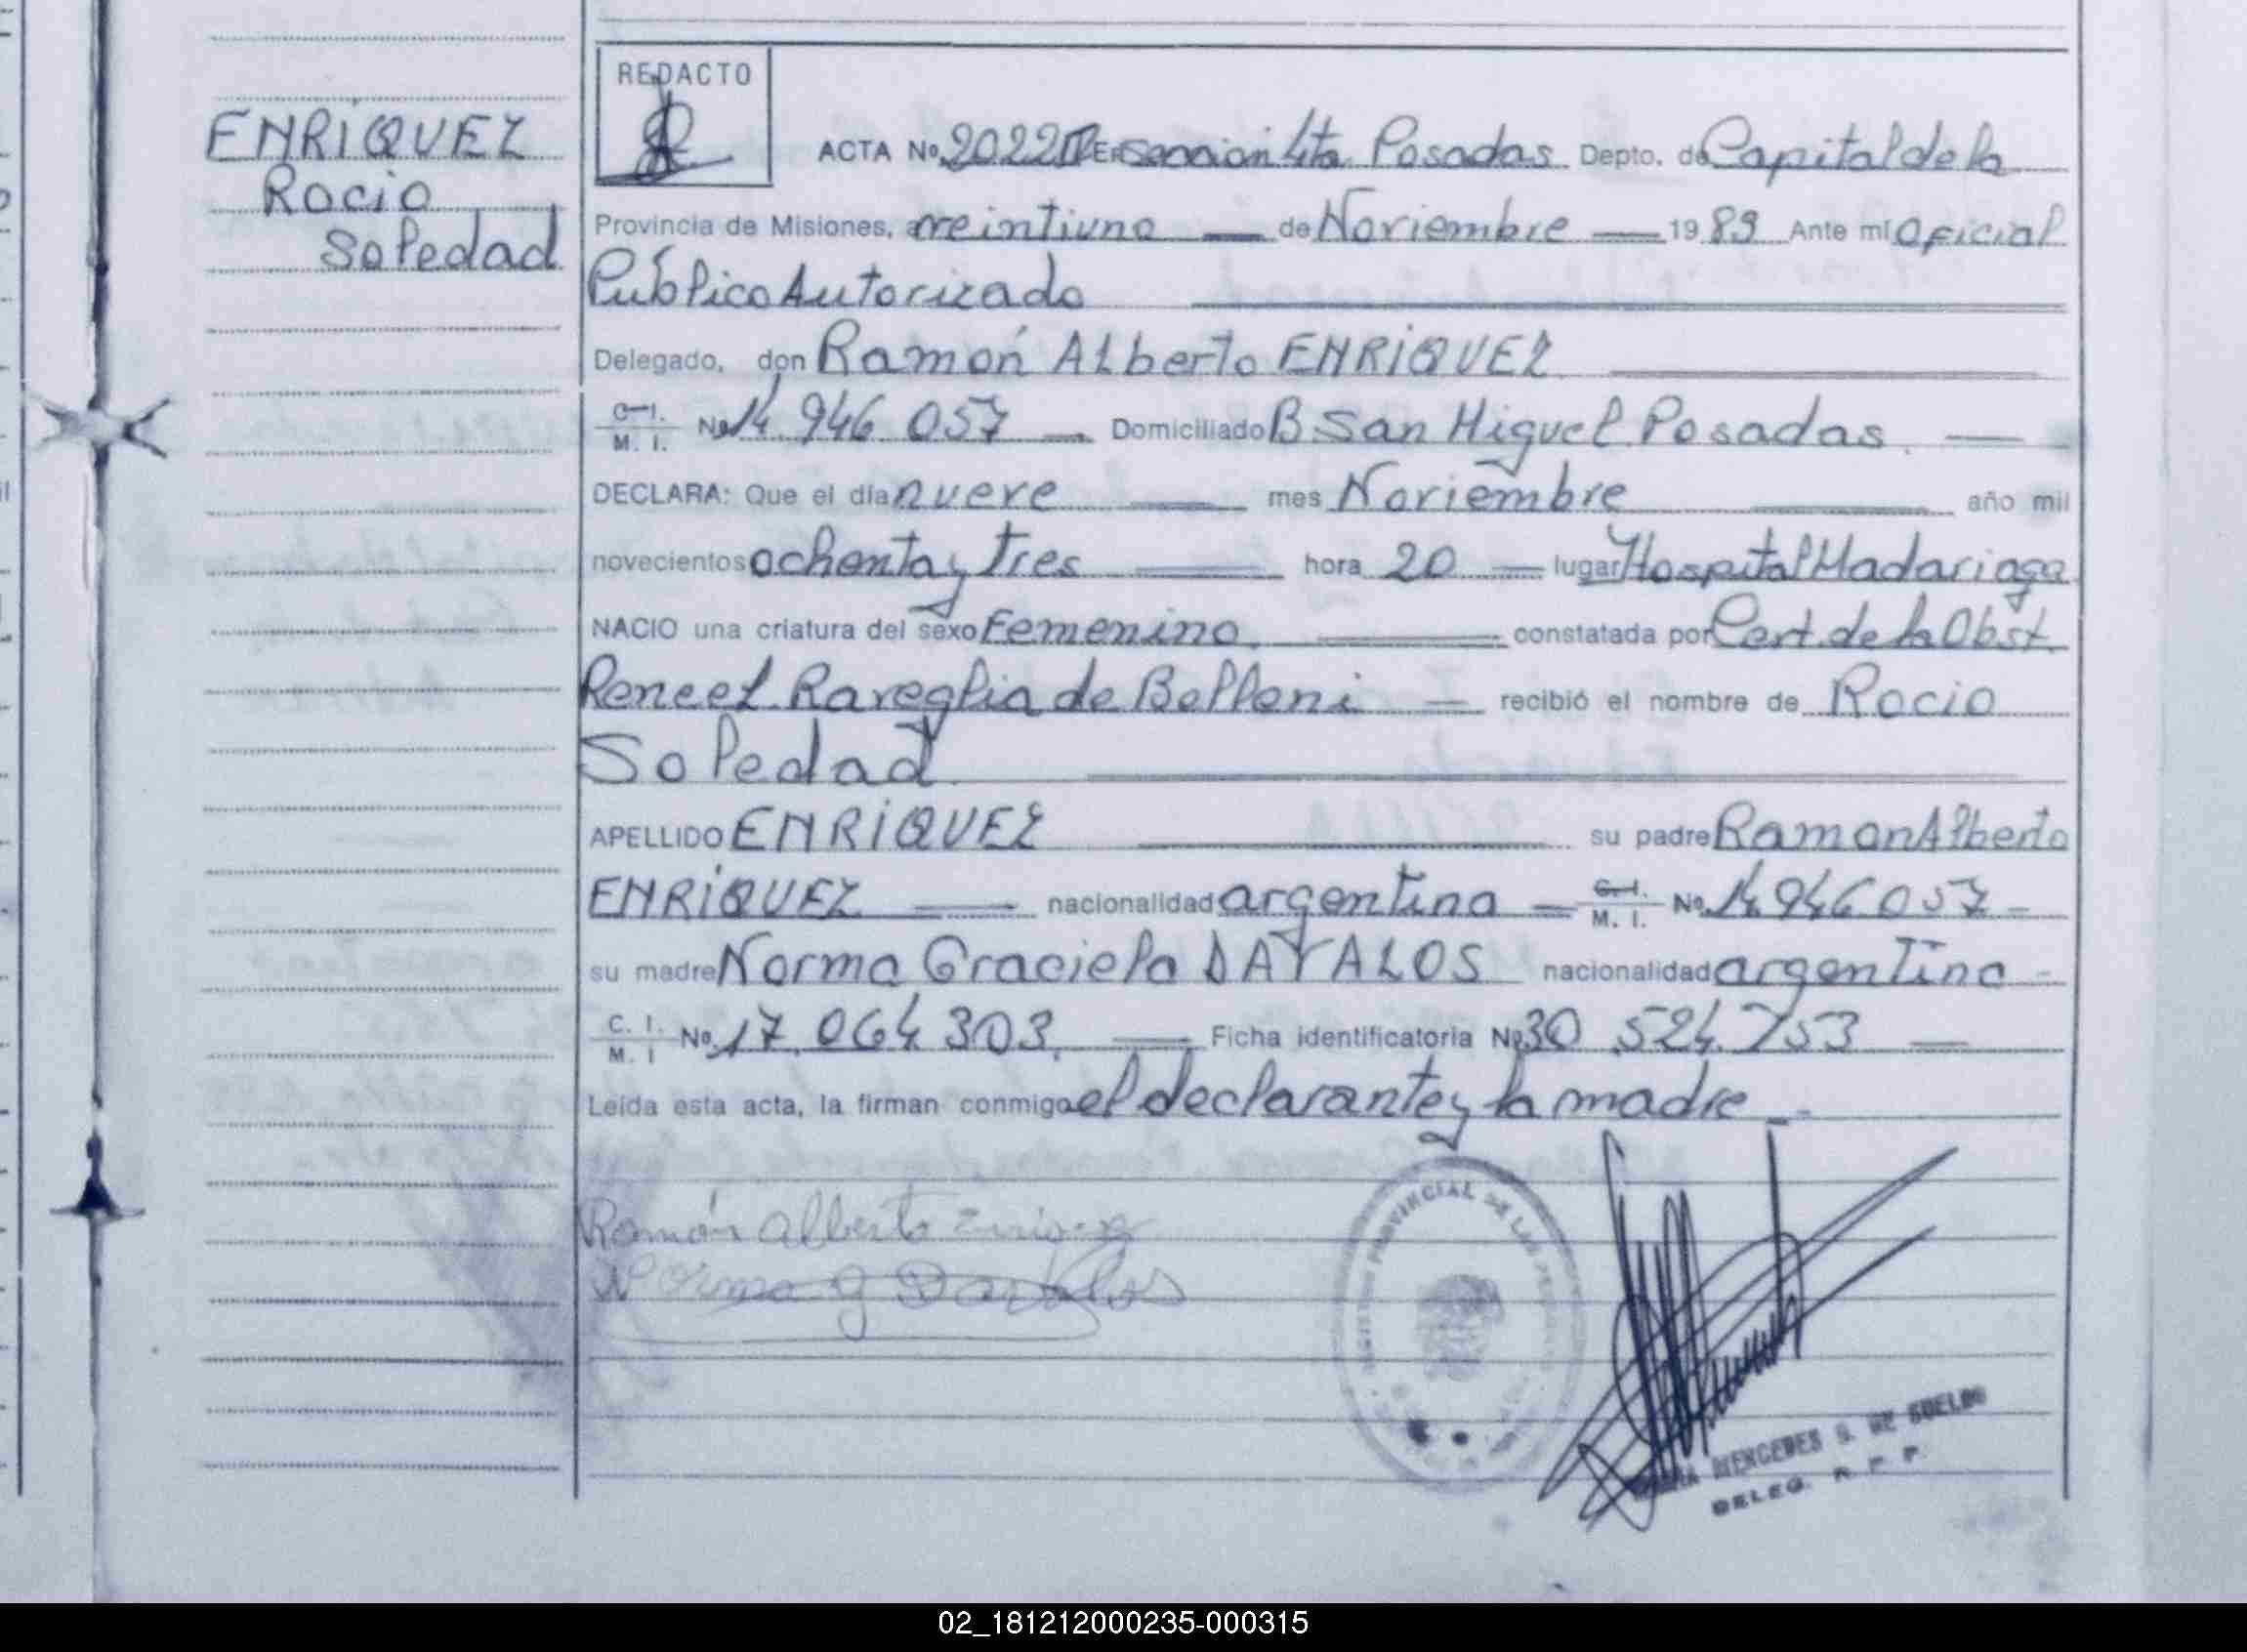 REDACTO
ENRIQUEZ
Rocio
Soledad
ACTA No. 2022 sección 4ta Posadas Depto. de Capital de la
Provincia de Misiones, a veintiuno de Noviembre 1983 Ante mi Oficial
Público Autorizado
Delegado, don Ramón Alberto ENRIQUEZ
C. I. M. I. No. 14.946.057 Domiciliado B San Miguel Posadas.
DECLARA: Que el día nueve mes Noviembre año mil
novecientos ochenta y tres hora 20 lugar Hospital Madariaga
NACIO una criatura del sexo Femenino. constatada por Cert. de la Obst.
Raveglia de Belloni recibió el nombre de Rocio
Soledad
APELLIDO ENRIQUEZ su padre Ramon Alberto
ENRIQUEZ nacionalidad argentina C. I. M. I. No. 14.946.057
su madre Norma Graciela DAVALOS nacionalidad argentina
C. I. M. I No. 17.064.303. Ficha identificatoria No. 30.524.753
Leída esta acta, la firman conmigo el declarante y la madre
Ramón Alberto Enriquez
Norma G Davalos
PROVINCIAL DE LAS
MERCEDES S. DE
DELEG. R. P. P.
02_181212000235-000315